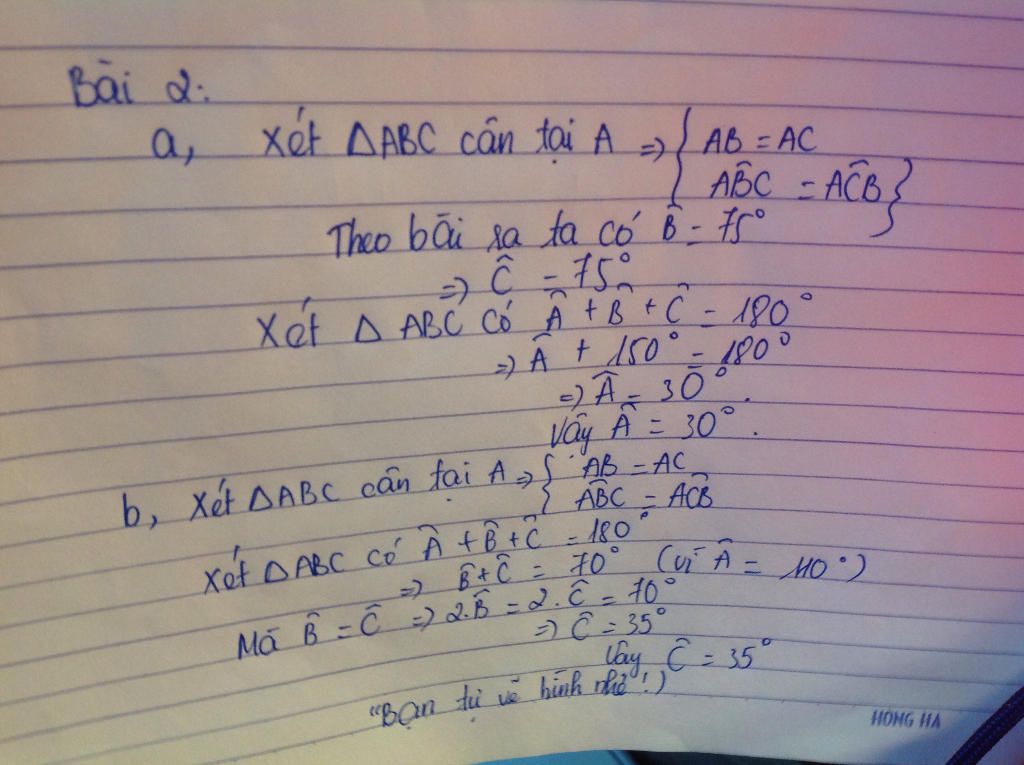 Bài 2:
a, Xét ΔABC cân tại A => { AB = AC
AB̂C = AĈB }
Theo bài ra ta có B̂ = 75°
=> Ĉ = 75°
Xét Δ ABC có Â + B̂ + Ĉ = 180°
=> Â + 150° = 180°
=> Â = 30°.
Vậy Â = 30°.
b, Xét ΔABC cân tại A => { AB = AC
AB̂C = AĈB
Xét ΔABC có Â + B̂ + Ĉ = 180°
=> B̂ + Ĉ = 70° (vì Â = 110°)
Mà B̂ = Ĉ => 2.B̂ = 2.Ĉ = 70°
=> Ĉ = 35°
Vậy Ĉ = 35°
"Bạn tự vẽ hình nhở!)
HONG HA